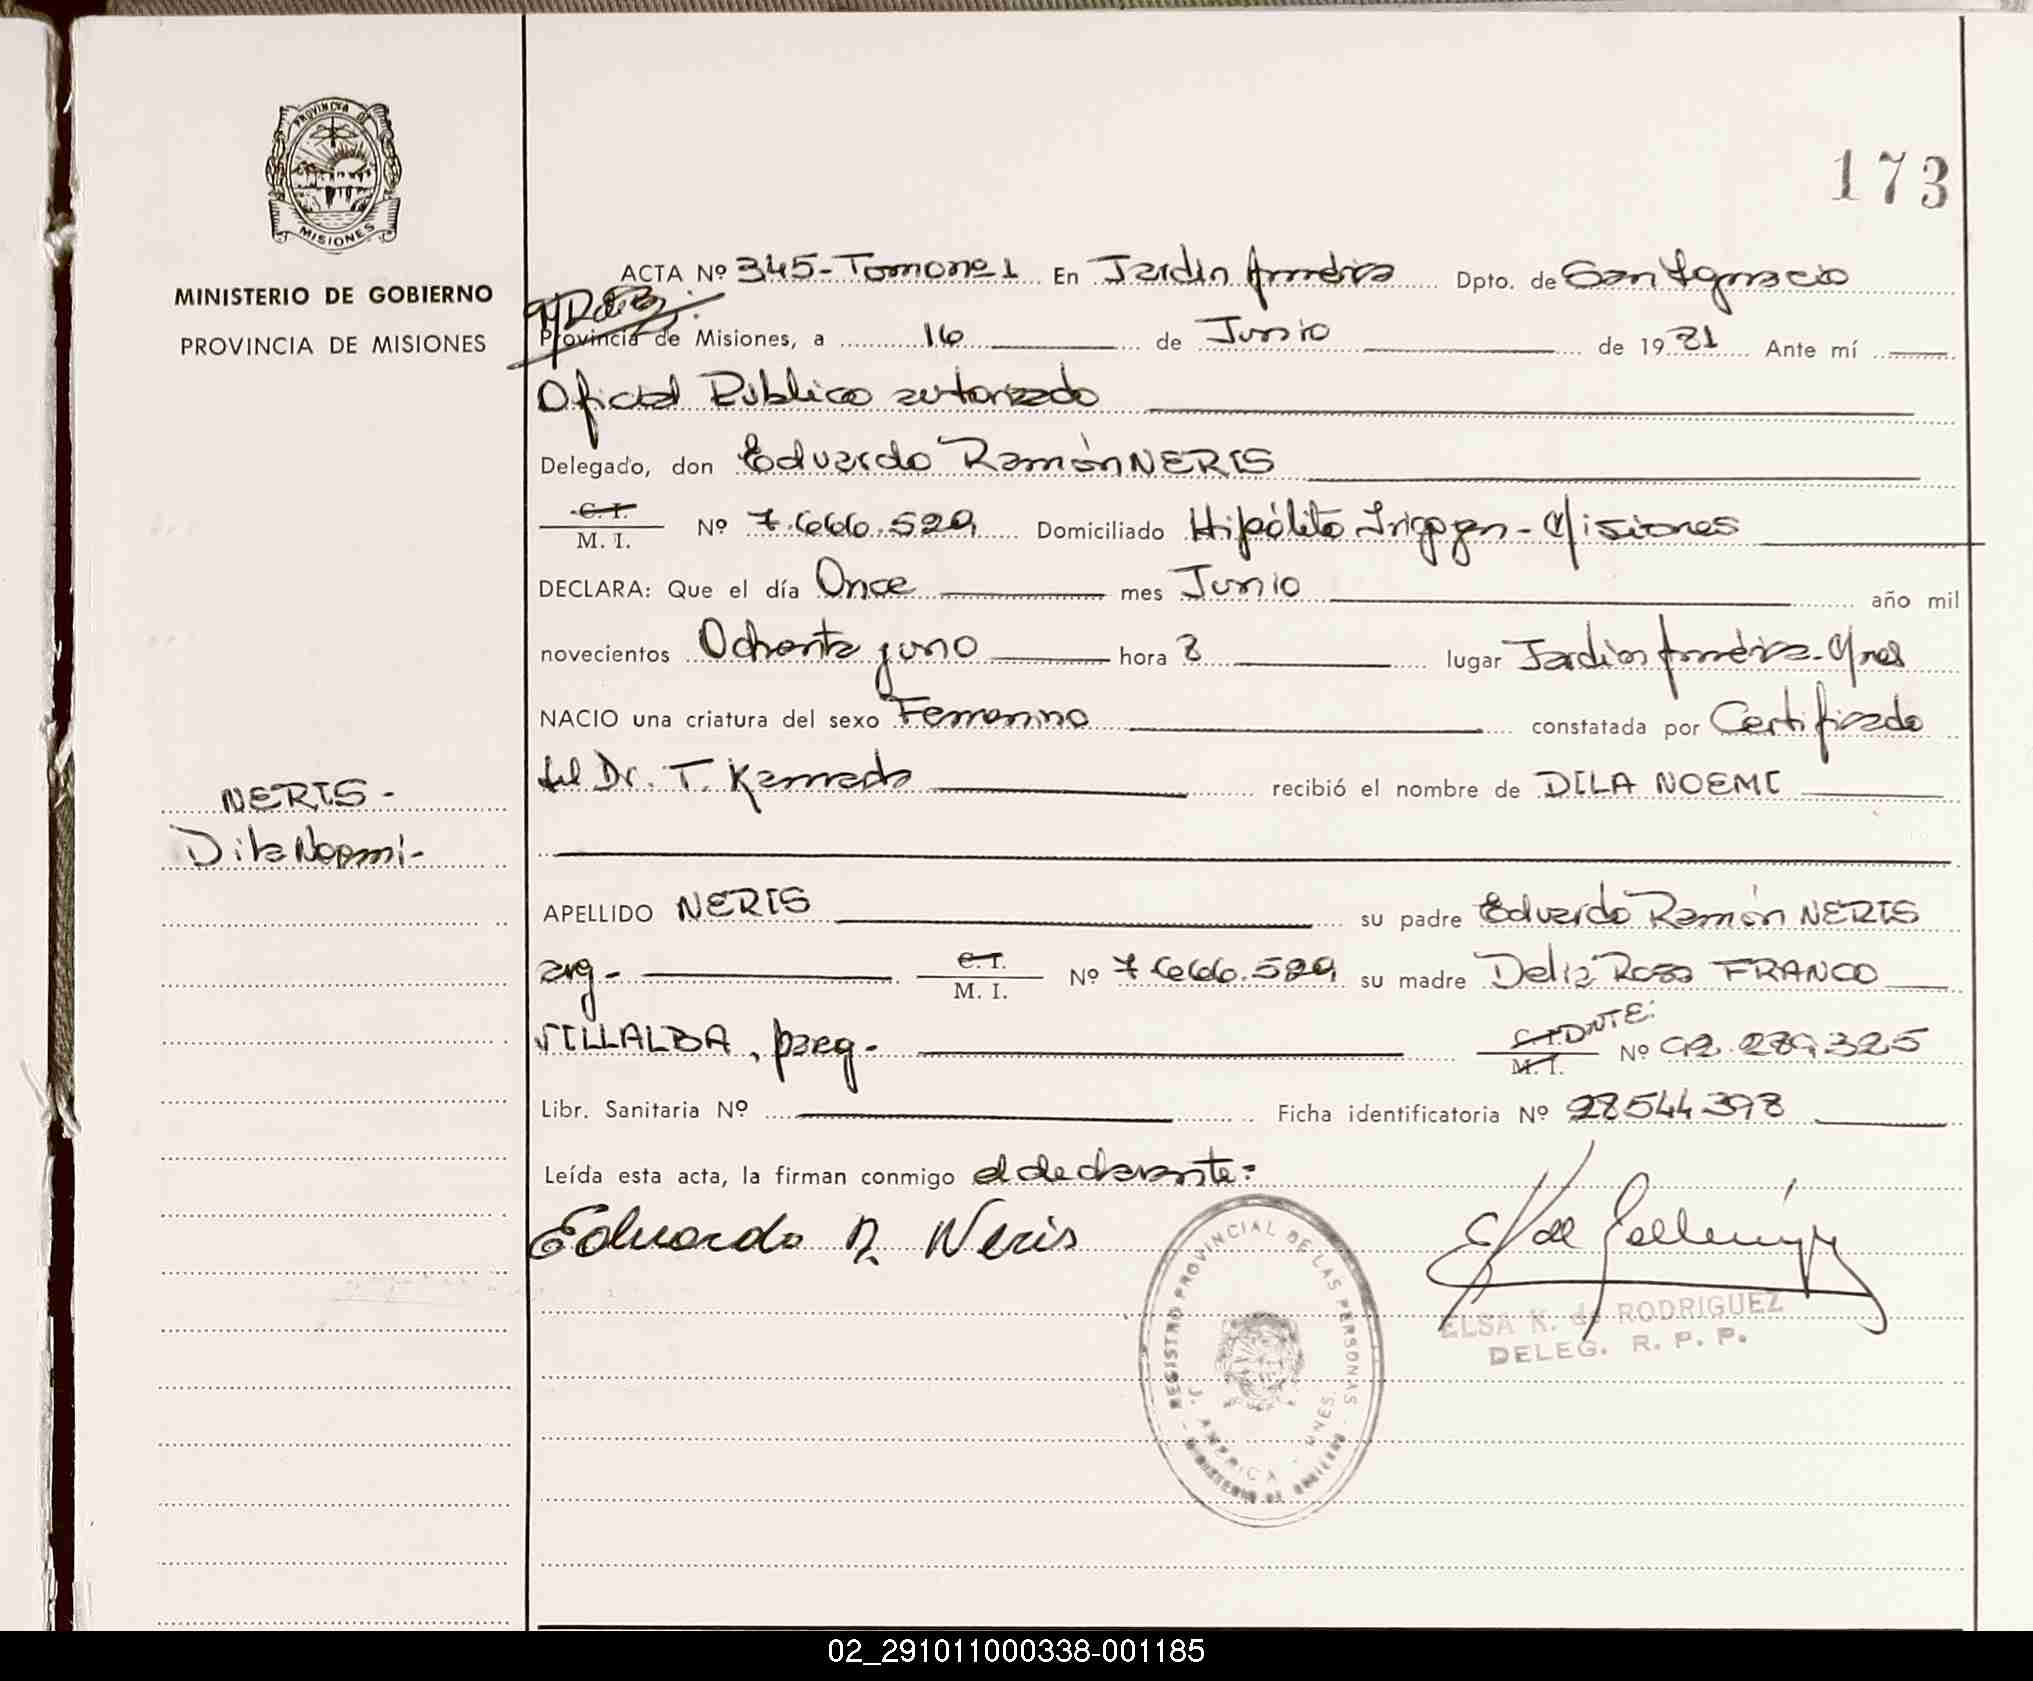 PROVINCIA DE
MISIONES
MINISTERIO DE GOBIERNO
PROVINCIA DE MISIONES
173
ACTA Nº 345-Tomo nº 1 En Jardín América Dpto. de San Ignacio
Provincia de Misiones, a 16 de Junio de 1981 Ante mí
Oficial Público autorizado
Delegado, don Eduardo Ramón NERIS
C. I.
M. I. Nº 7.666.529 Domiciliado Hipólito Irigoyen - Misiones
DECLARA: Que el día Once mes Junio año mil
novecientos Ochenta y uno hora 8 lugar Jardín América - Mnes
NACIO una criatura del sexo Femenino constatada por Certificado
del Dr. T. Kamada recibió el nombre de DILA NOEMI
NERIS -
Dila Noemi -
APELLIDO NERIS su padre Eduardo Ramón NERIS
arg - C. I.
M. I. Nº 7.666.529 su madre Delia Rosa FRANCO
VILLALBA, parag - C. I. DNTE:
M. I. Nº 92.289.325
Libr. Sanitaria Nº Ficha identificatoria Nº 28544398
Leída esta acta, la firman conmigo el declarante:
Eduardo R. Neris
REGISTRO PROVINCIAL DE LAS PERSONAS
J. AMERICA - MNES.
MINISTERIO DE GOBIERNO
ELSA K. de RODRIGUEZ
DELEG. R. P. P.
02_291011000338-001185